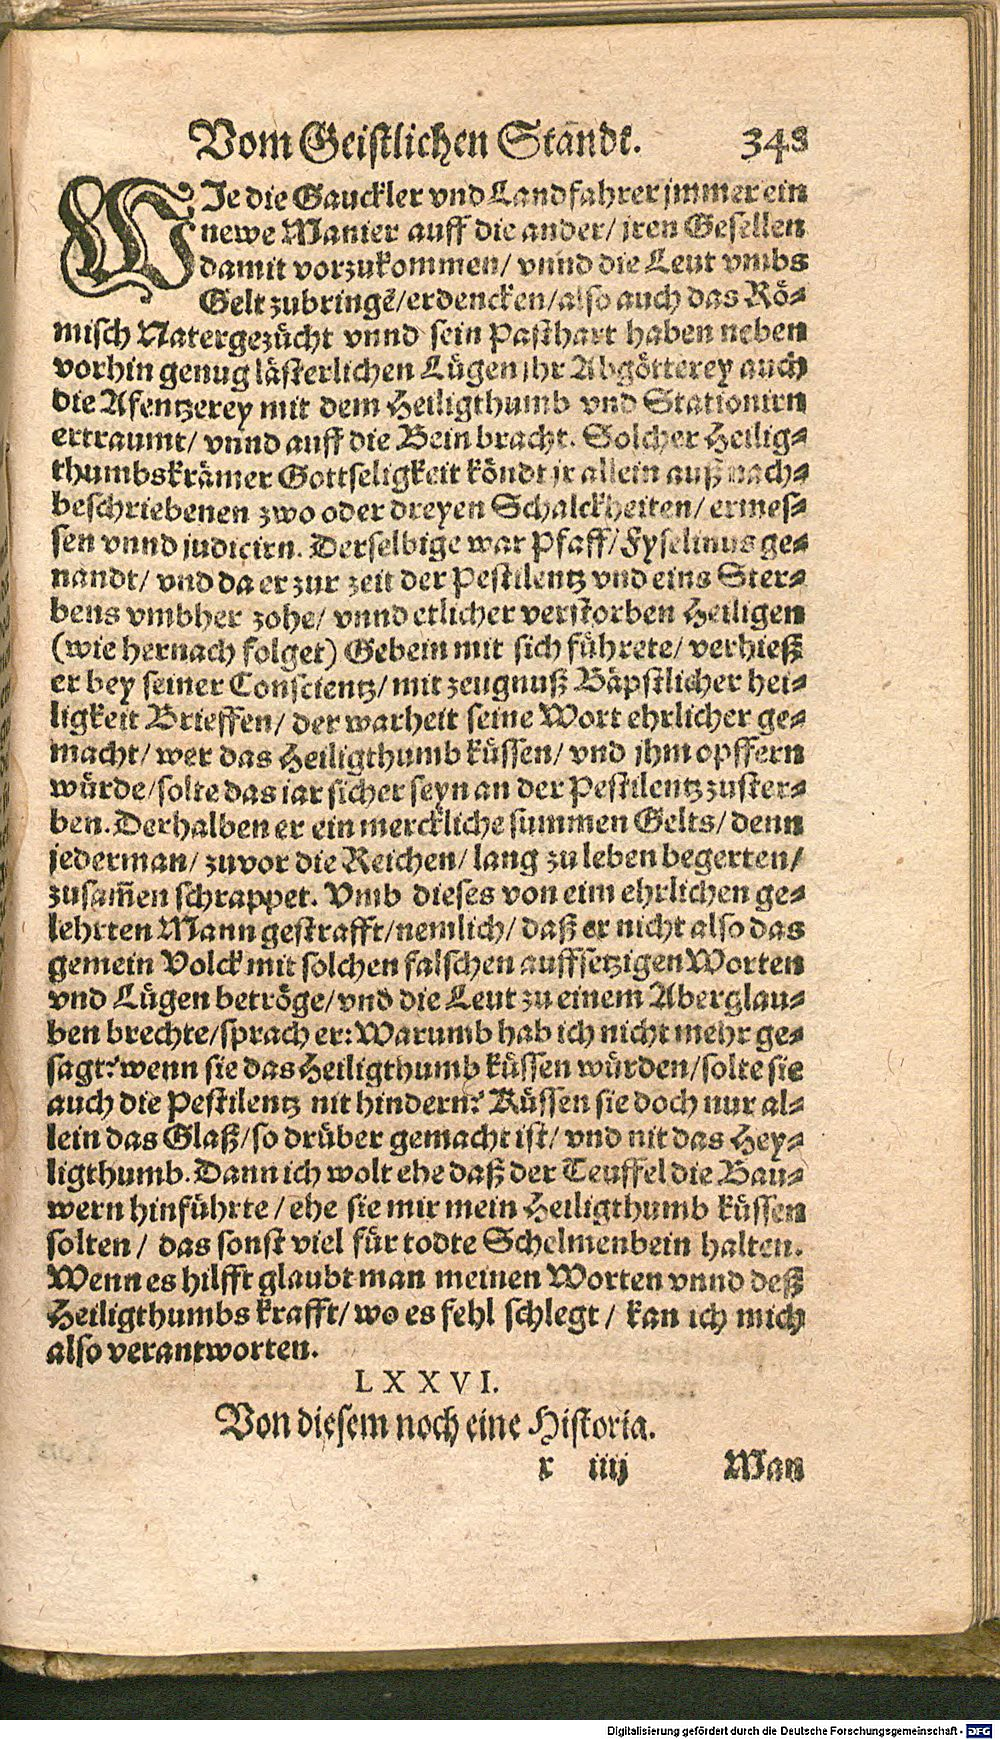 Vom Geistlichen Standt. 348
WIe die Gauckler vnd Landfahrer jmmer ein
newe Manier auff die ander/ jren Gesellen
damit vorzukommen/ vnnd die Leut vmbs
Gelt zubringẽ/erdencken/also auch das Rö-
misch Natergezücht vnnd sein Pasthart haben neben
vorhin genug lästerlichen Lügen jhr Abgötterey auch
die Afentzerey mit dem Heiligthumb vnd Stationirn
ertraumt/ vnnd auff die Bein bracht. Solcher Heilig-
thumbskrämer Gottseligkeit köndt jr allein auß nach-
beschriebenen zwo oder dreyen Schalckheiten/ ermes-
sen vnnd judicirn. Derselbige war Pfaff/ Fyselinus ge-
nandt/ vnd da er zur zeit der Pestilentz vnd eins Ster-
bens vmbher zohe/ vnnd etlicher verstorben Heiligen
(wie hernach folget) Gebein mit sich führete/ verhieß
er bey seiner Conscientz/ mit zeugnuß Bäpstlicher hei-
ligkeit Brieffen/ der warheit seine Wort ehrlicher ge-
macht/ wer das Heiligthumb küssen/ vnd jhm opffern
würde/solte das jar sicher seyn an der Pestilentz zuster-
ben. Derhalben er ein merckliche summen Gelts/ denn
jederman/ zuvor die Reichen/ lang zu leben begerten/
zusam̃en schrappet. Vmb dieses von eim ehrlichen ge-
lehrten Mann gestrafft/nemlich/ daß er nicht also das
gemein Volck mit solchen falschen auffsetzigen Worten
vnd Lügen betröge/vnd die Leut zu einem Aberglau-
ben brechte/sprach er: Warumb hab ich nicht mehr ge-
sagt? wenn sie das Heiligthumb küssen würden/solte sie
auch die Pestilentz nit hindern? Küssen sie doch nur al-
lein das Glaß/so drüber gemacht ist/ vnd nit das Hey-
ligthumb. Dann ich wolt ehe daß der Teuffel die Bau-
wern hinführte/ehe sie mir mein Heiligthumb küssen
solten/ das sonst viel für todte Schelmenbein halten.
Wenn es hilfft glaubt man meinen Worten vnnd deß
Heiligthumbs krafft/ wo es fehl schlegt/ kan ich mich
also verantworten.
LXXVI.
Von diesem noch eine Historia.
x iiij Man
Digitalisierung gefördert durch die Deutsche Forschungsgemeinschaft - DFG